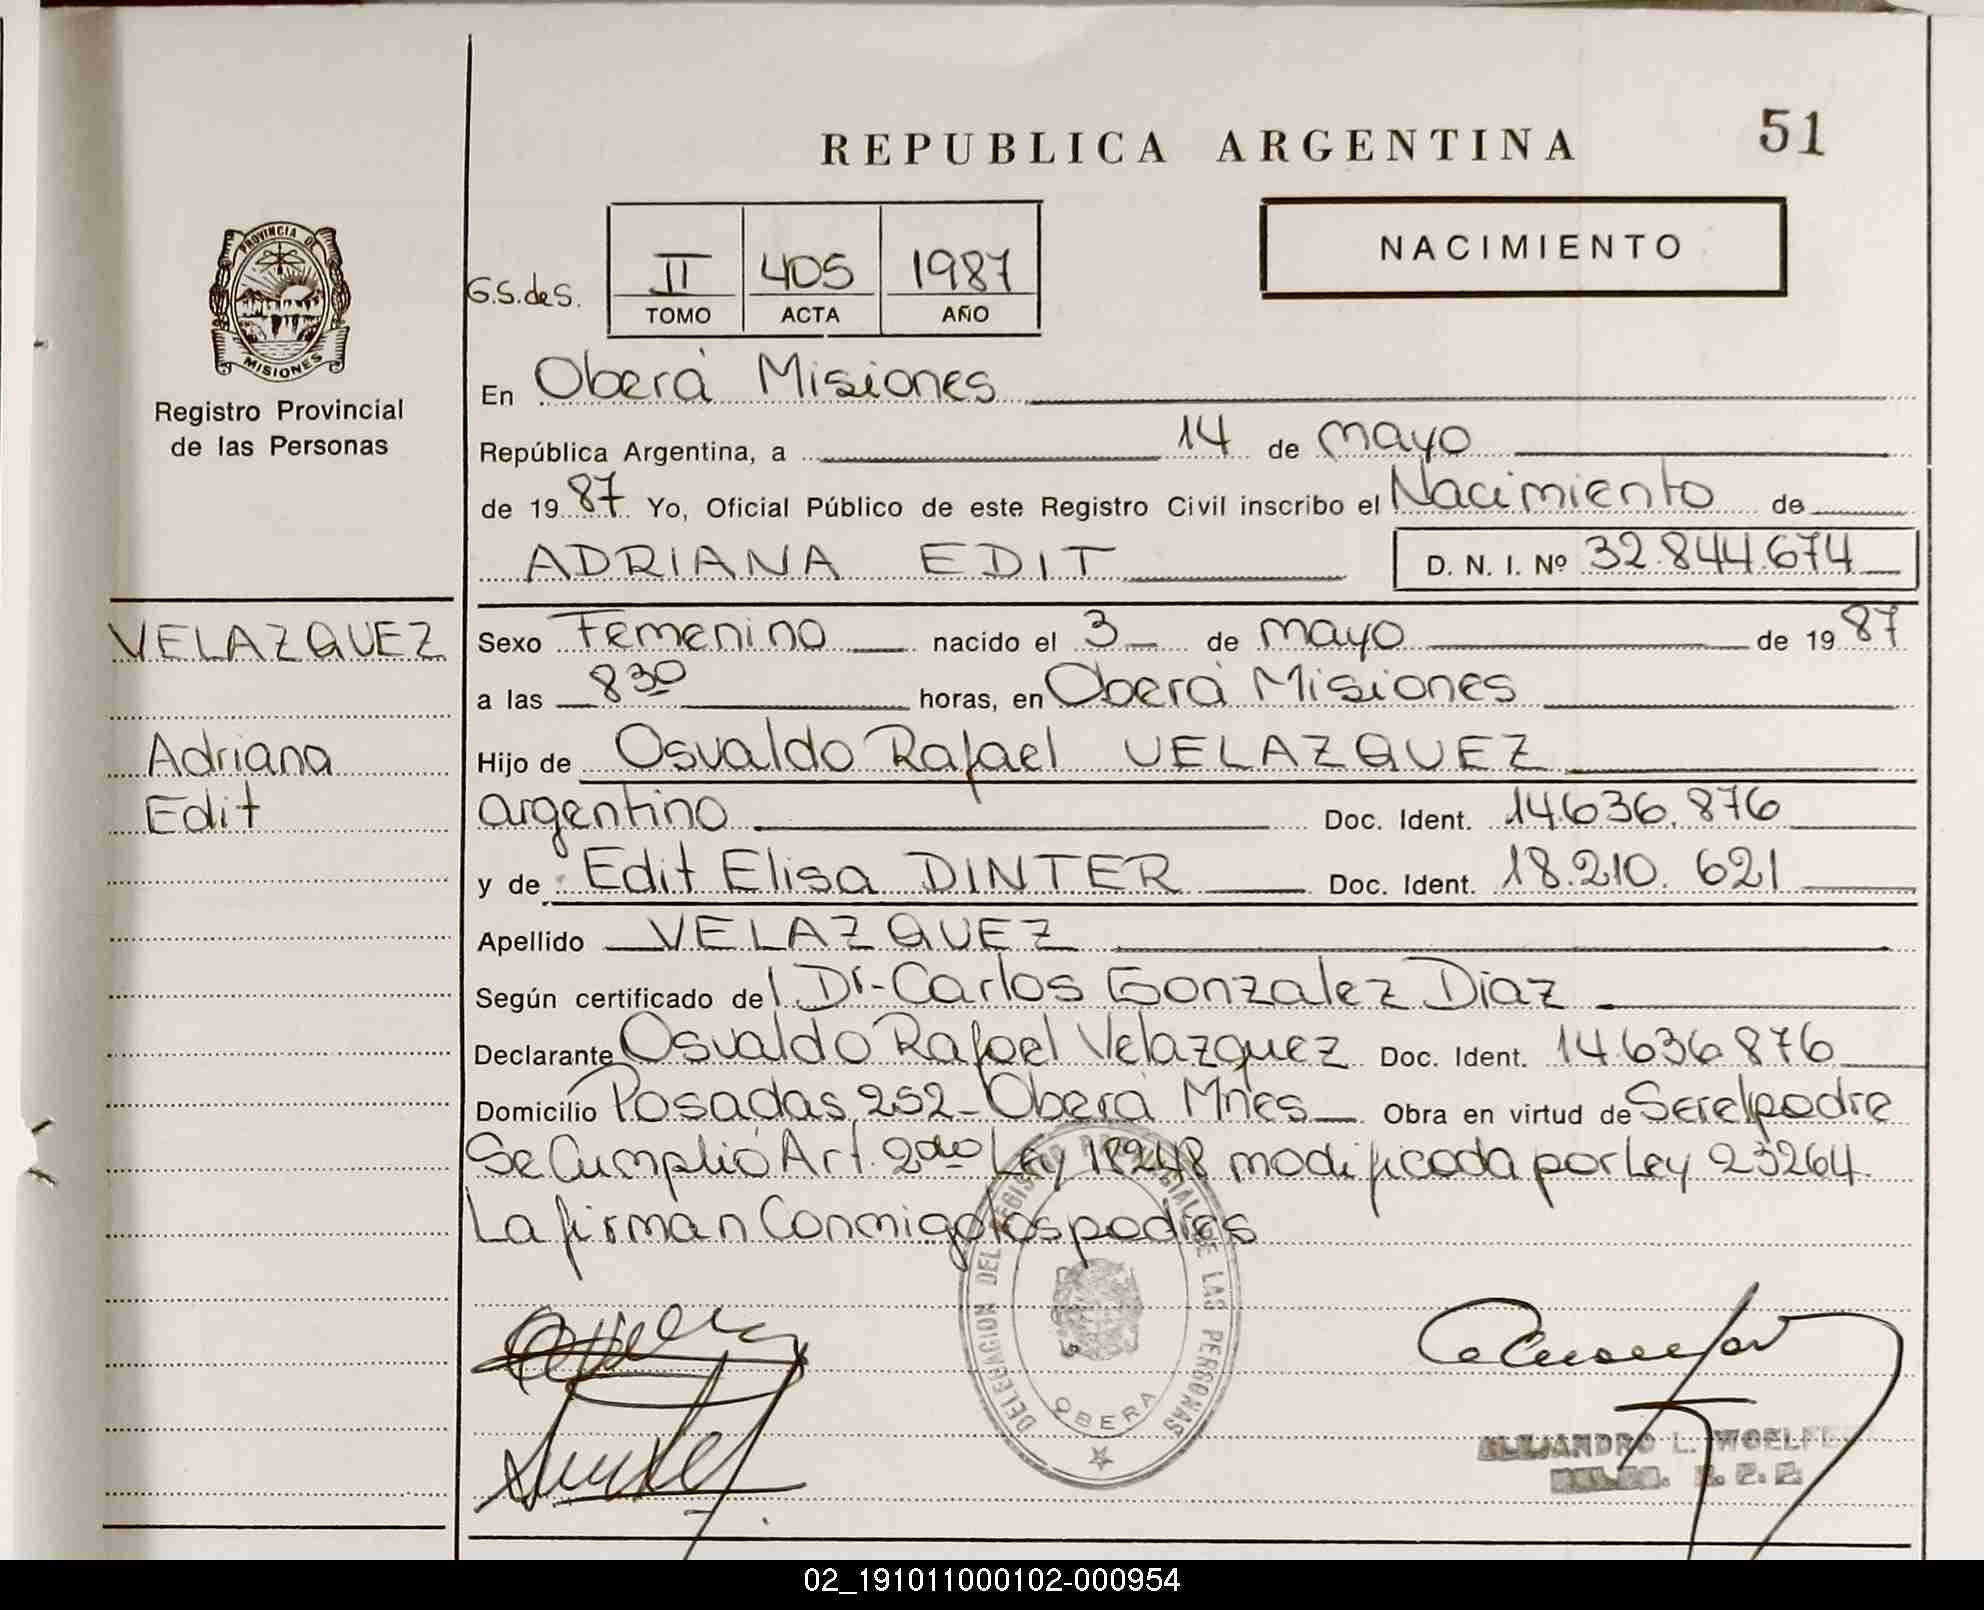 REPUBLICA ARGENTINA
51
PROVINCIA DE
MISIONES
Registro Provincial
de las Personas
G.S.deS.
II 405 1987
TOMO ACTA AÑO
NACIMIENTO
En Oberá Misiones
República Argentina, a 14 de mayo
de 1987 Yo, Oficial Público de este Registro Civil inscribo el Nacimiento de
ADRIANA EDIT D. N. I. Nº 32.844.674
VELAZQUEZ
Adriana
Edit
Sexo Femenino nacido el 3 de mayo de 1987
a las 8 30 horas, en Oberá Misiones
Hijo de Osvaldo Rafael VELAZQUEZ
argentino Doc. Ident. 14.636.876
y de Edit Elisa DINTER Doc. Ident. 18.210.621
Apellido VELAZQUEZ
Según certificado del Dr. Carlos Gonzalez Diaz
Declarante Osvaldo Rafael Velazquez Doc. Ident. 14.636.876
Domicilio Posadas 252 - Oberá Mnes Obra en virtud de Ser el padre
Se Cumplió Art. 2do Ley 18248 modificada por Ley 23264.
La firman Conmigo los padres
DELEGACION DEL REGISTRO PROVINCIAL DE LAS PERSONAS
OBERA
ALEJANDRO L. WOELF
02_191011000102-000954